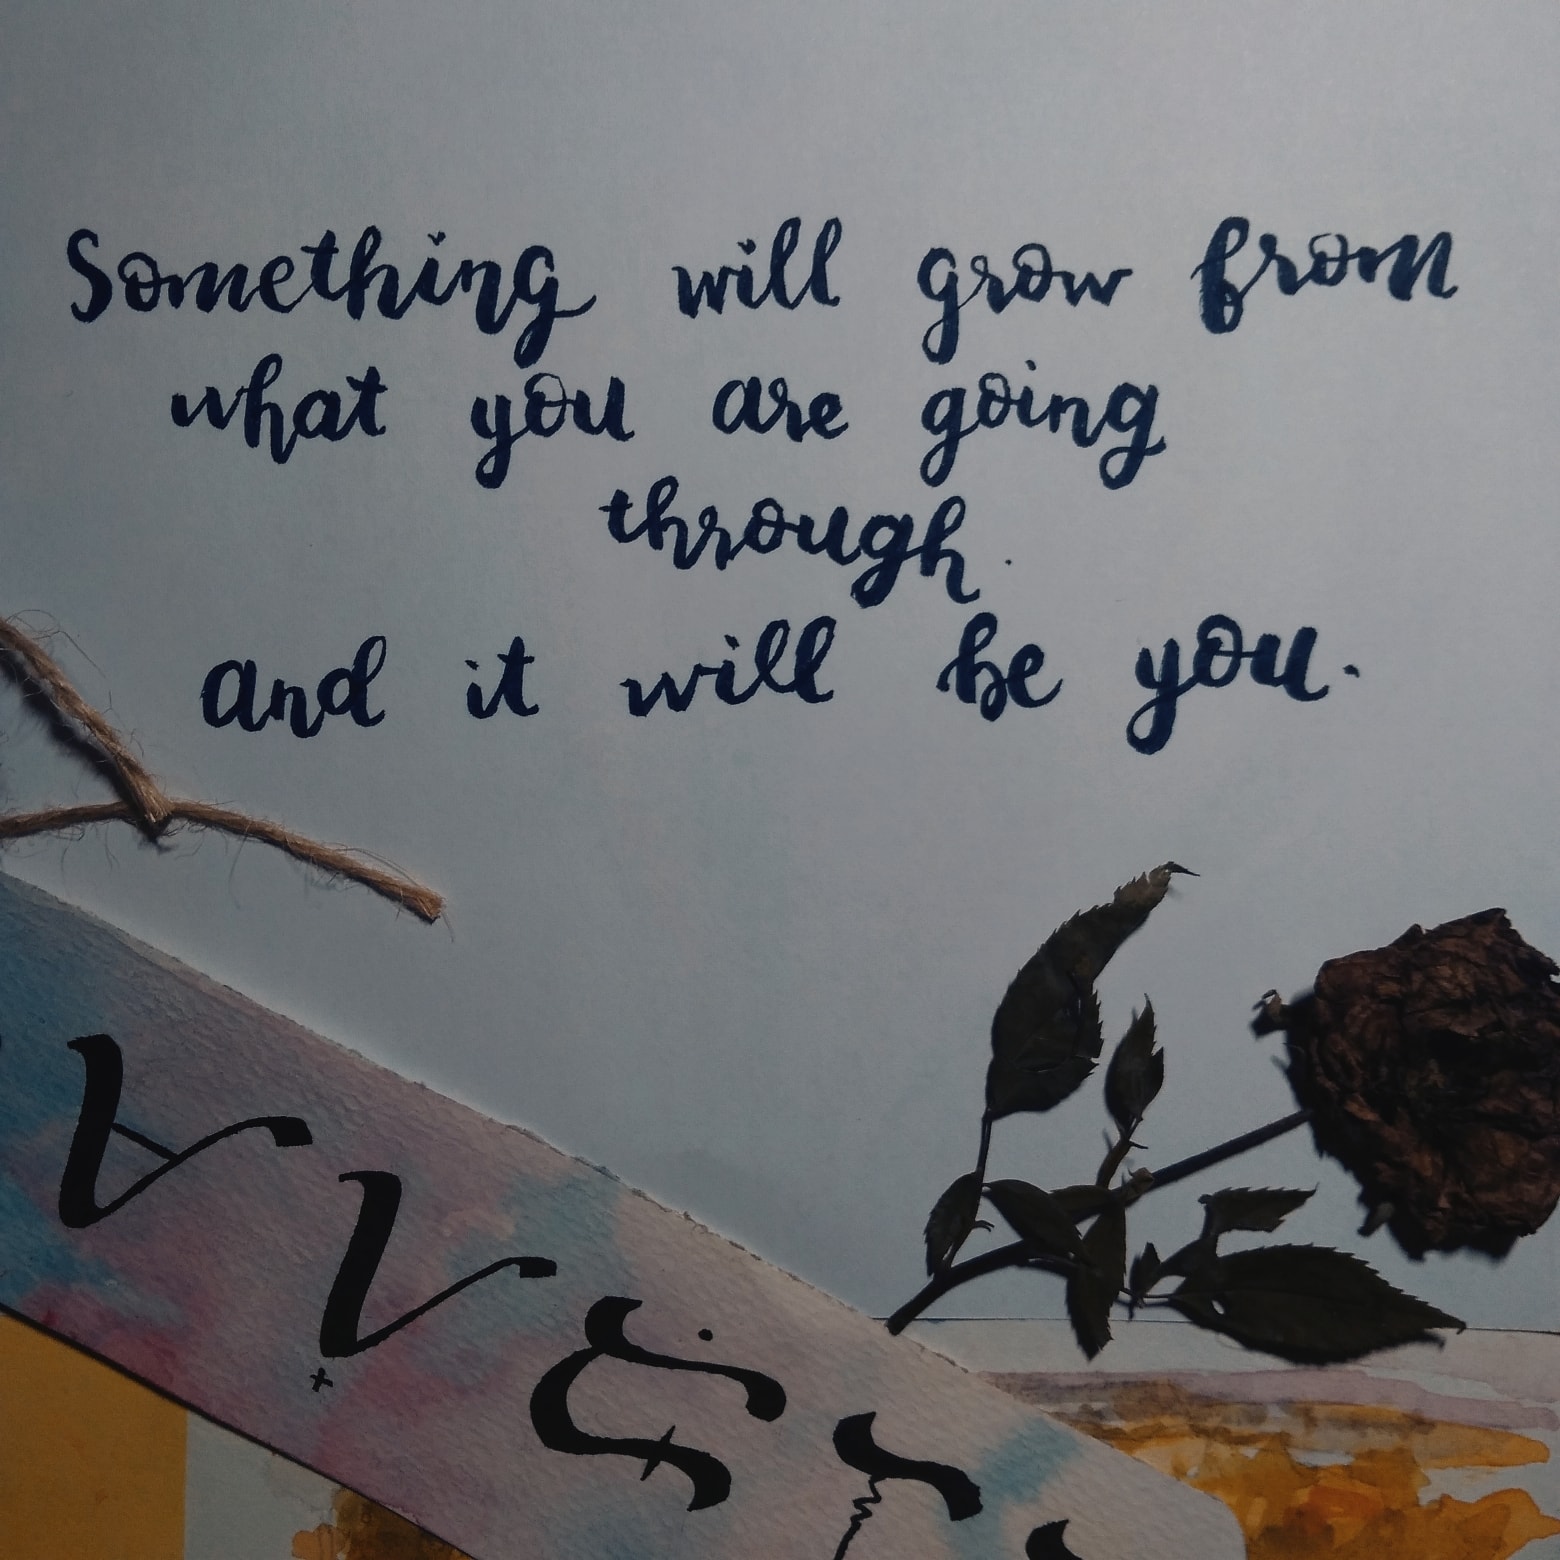 Something will grow from
what you are going
through.
and it will be you.